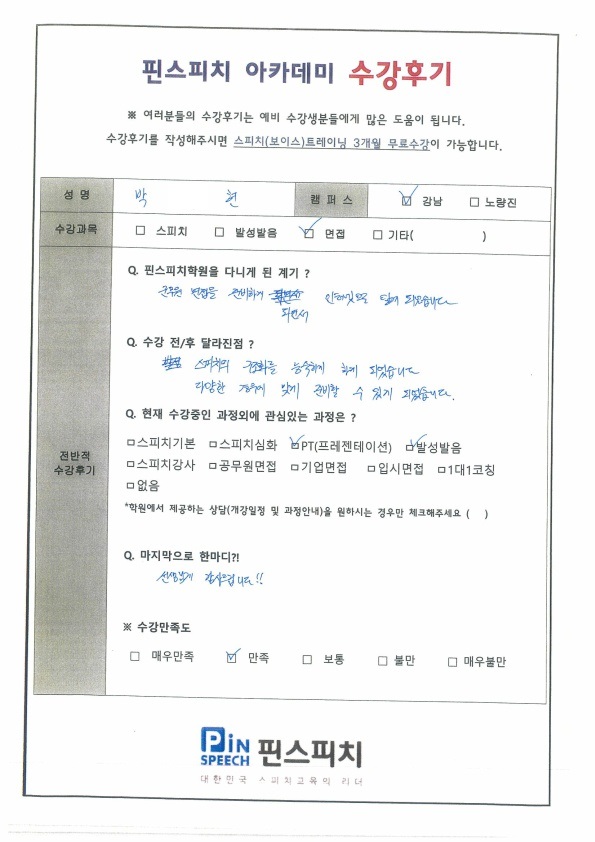 핀스피치 아카데미 수강후기
※ 여러분들의 수강후기는 예비 수강생분들에게 많은 도움이 됩니다.
수강후기를 작성해주시면 스피치(보이스)트레이닝 3개월 무료수강이 가능합니다.
성 명 박 현 캠 퍼 스 강남 노량진
수강과목 스피치 발성발음 면접 기타( )
Q. 핀스피치학원을 다니게 된 계기 ?
군무원 면접을 준비하게
되면서
Q. 수강 전/후 달라진점 ?
스피치의 구조화를 능숙하게 하게 되었습니다
다양한 경우에 맞게 준비할 수 있게 되었습니다.
Q. 현재 수강중인 과정외에 관심있는 과정은 ?
스피치기본 스피치심화 PT(프레젠테이션) 발성발음
전반적
수강후기
스피치강사 공무원면접 기업면접 입시면접 1대1코칭
없음
*학원에서 제공하는 상담(개강일정 및 과정안내)을 원하시는 경우만 체크해주세요 ( )
Q. 마지막으로 한마디?!
선생님께 감사드립니다!!
※ 수강만족도
매우만족 만족 보통 불만 매우불만
PiN
SPEECH 핀스피치
대한민국 스피치교육의 리더